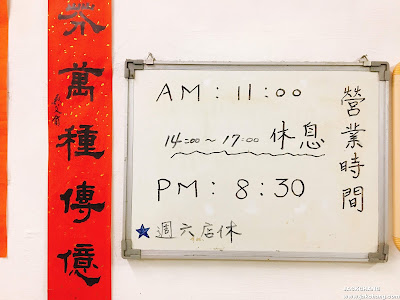 萬種傳億
營業時間
AM：11：00
14:00～17:00 休息
PM：8：30
★週六店休